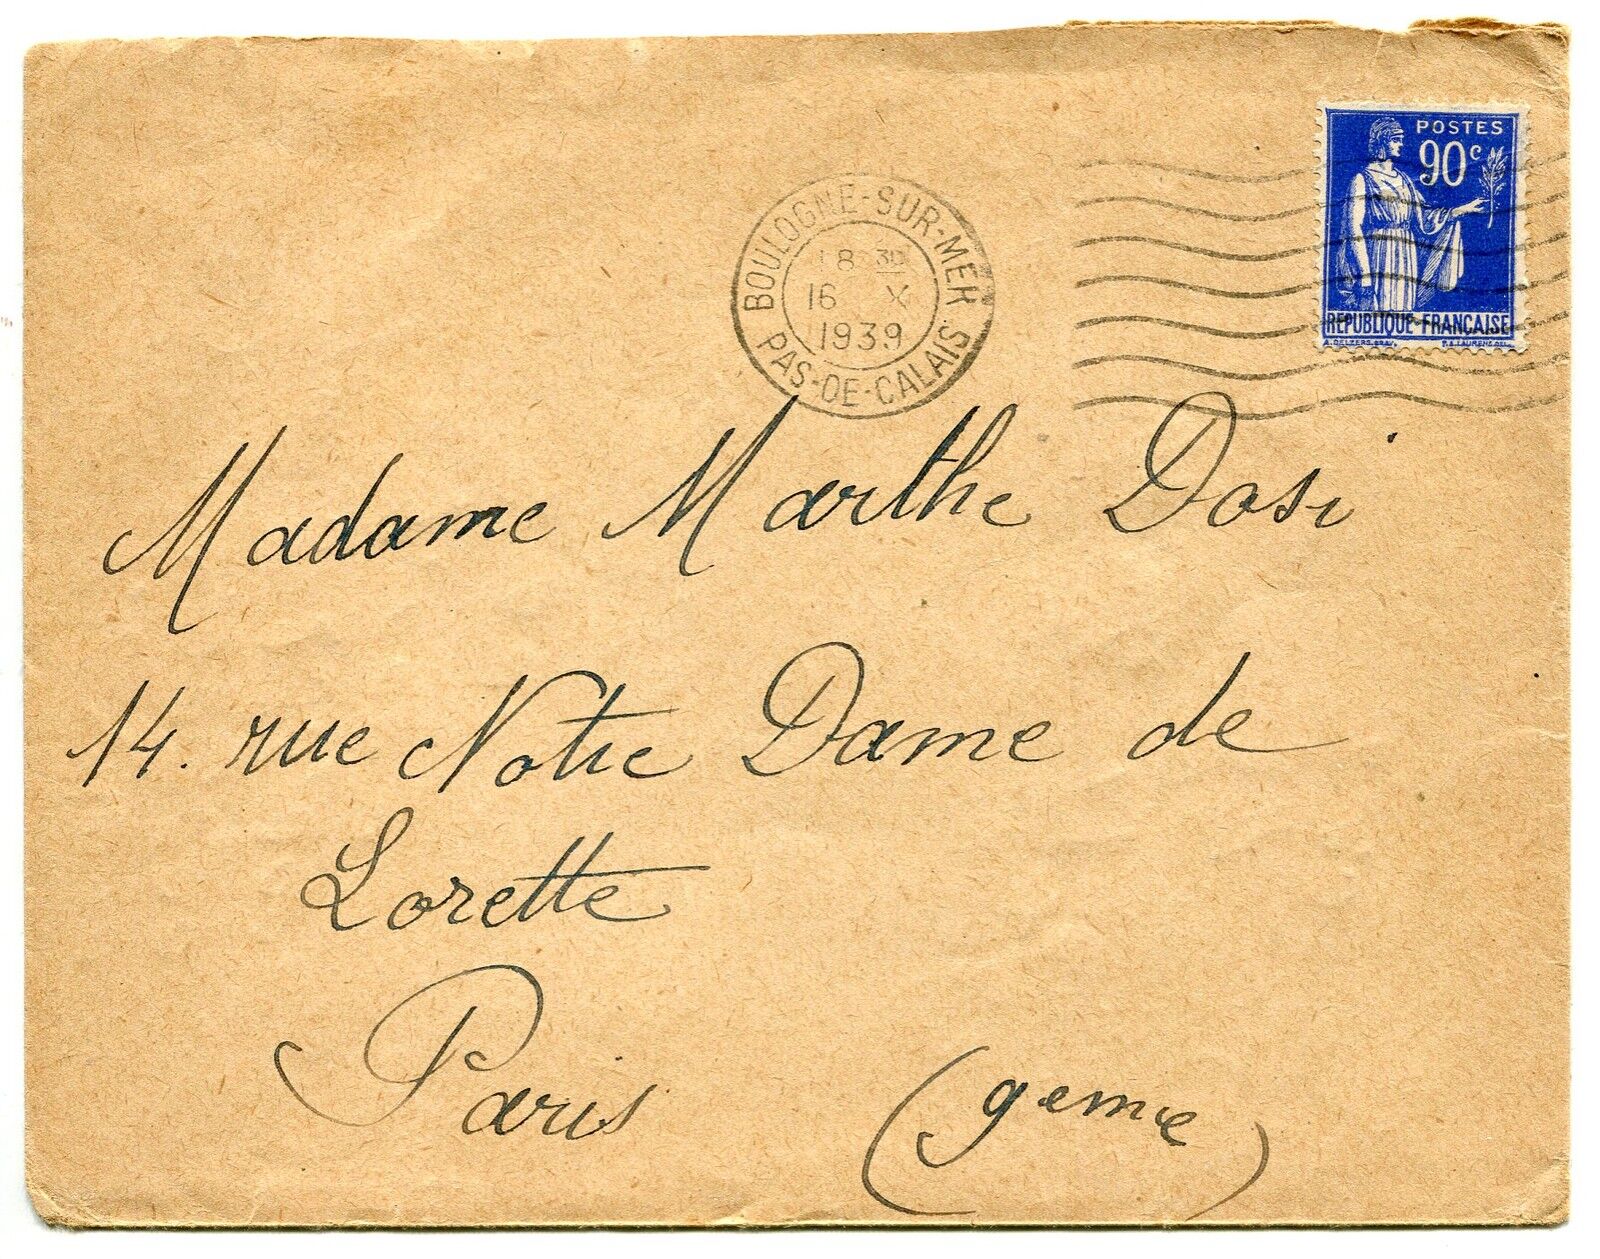 POSTES
90c
REPUBLIQUE-FRANÇAISE
A.DELZERS.GRAV. P.A.LAURENS.DEL.
BOULOGNE-SUR-MER
18 30
16 X
1939
PAS-DE-CALAIS
Madame Marthe Dosi
14. rue Notre Dame de
Lorette
Paris (9eme)